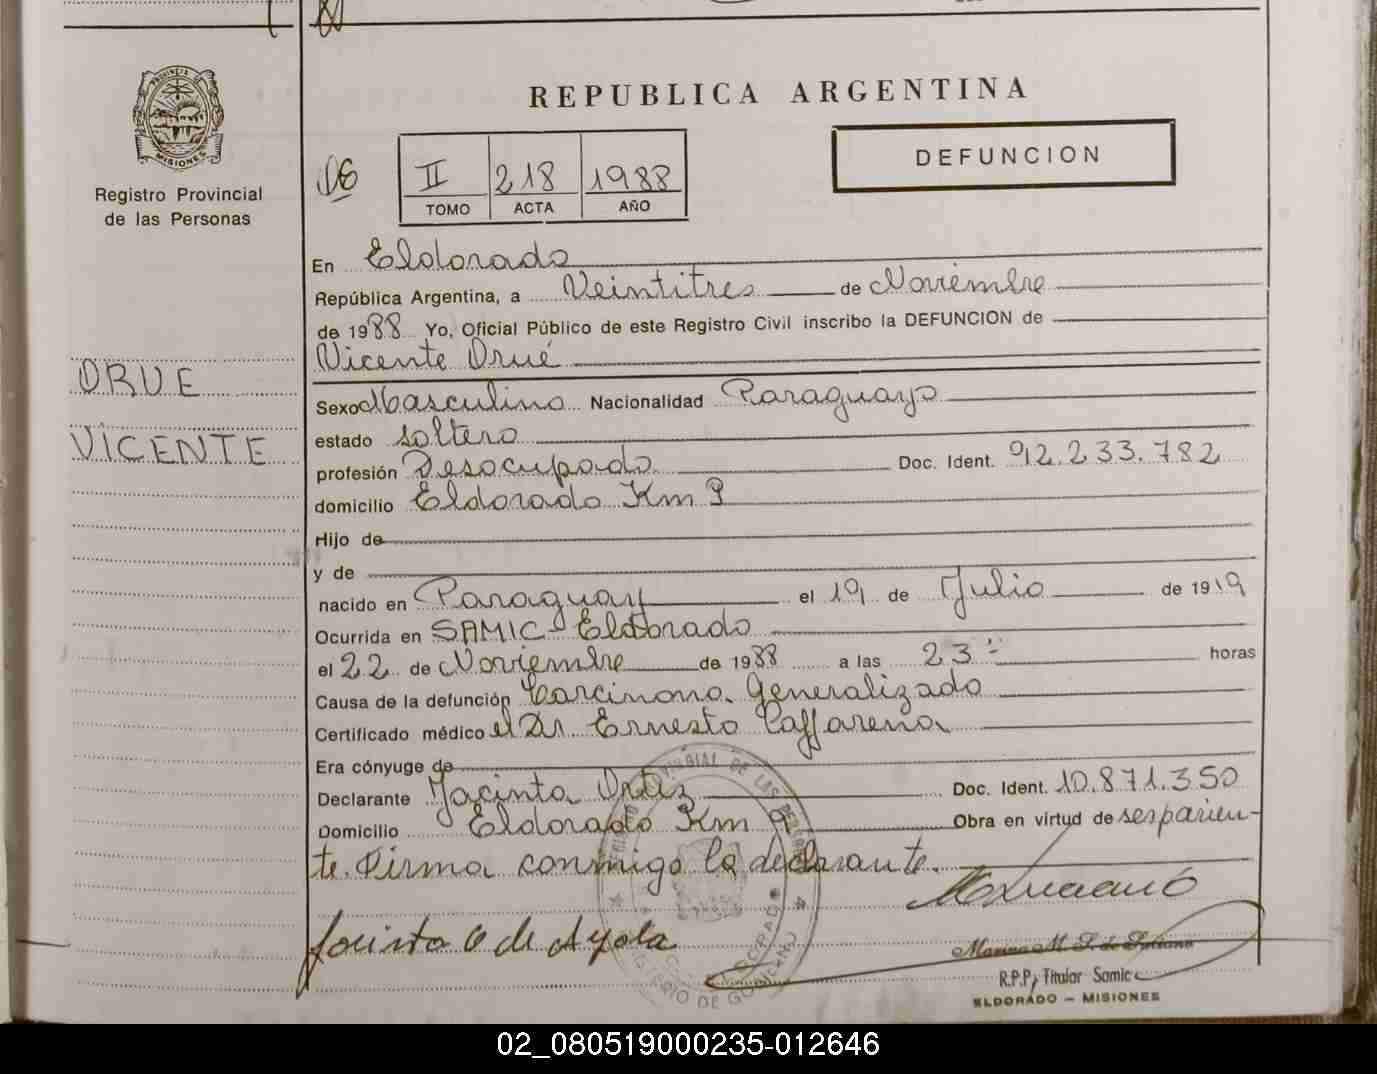 PROVINCIA DE
MISIONES
Registro Provincial
de las Personas
REPUBLICA ARGENTINA
II 218 1988
TOMO ACTA AÑO
DEFUNCION
En Eldorado
República Argentina, a Veintitres de Noviembre
de 1988 Yo, Oficial Público de este Registro Civil inscribo la DEFUNCION de
Vicente Orué
ORUE
VICENTE
Sexo Masculino Nacionalidad Paraguayo
estado soltero
profesión Desocupado Doc. Ident. 92.233.782
domicilio Eldorado Km 9
Hijo de
y de
nacido en Paraguay el 19 de Julio de 1919
Ocurrida en SAMIC - Eldorado
el 22 de Noviembre de 1988 a las 23 horas
Causa de la defunción Carcinoma Generalizado
Certificado médico el Dr. Ernesto Caffarena
Era cónyuge de
Declarante Jacinta Ortiz Doc. Ident. 10.871.350
Domicilio Eldorado Km 9 Obra en virtud de ser parien-
te. Firma conmigo la declarante.
Jacinta O de Ayala
R.P.P. Titular Samic
ELDORADO - MISIONES
02_080519000235-012646